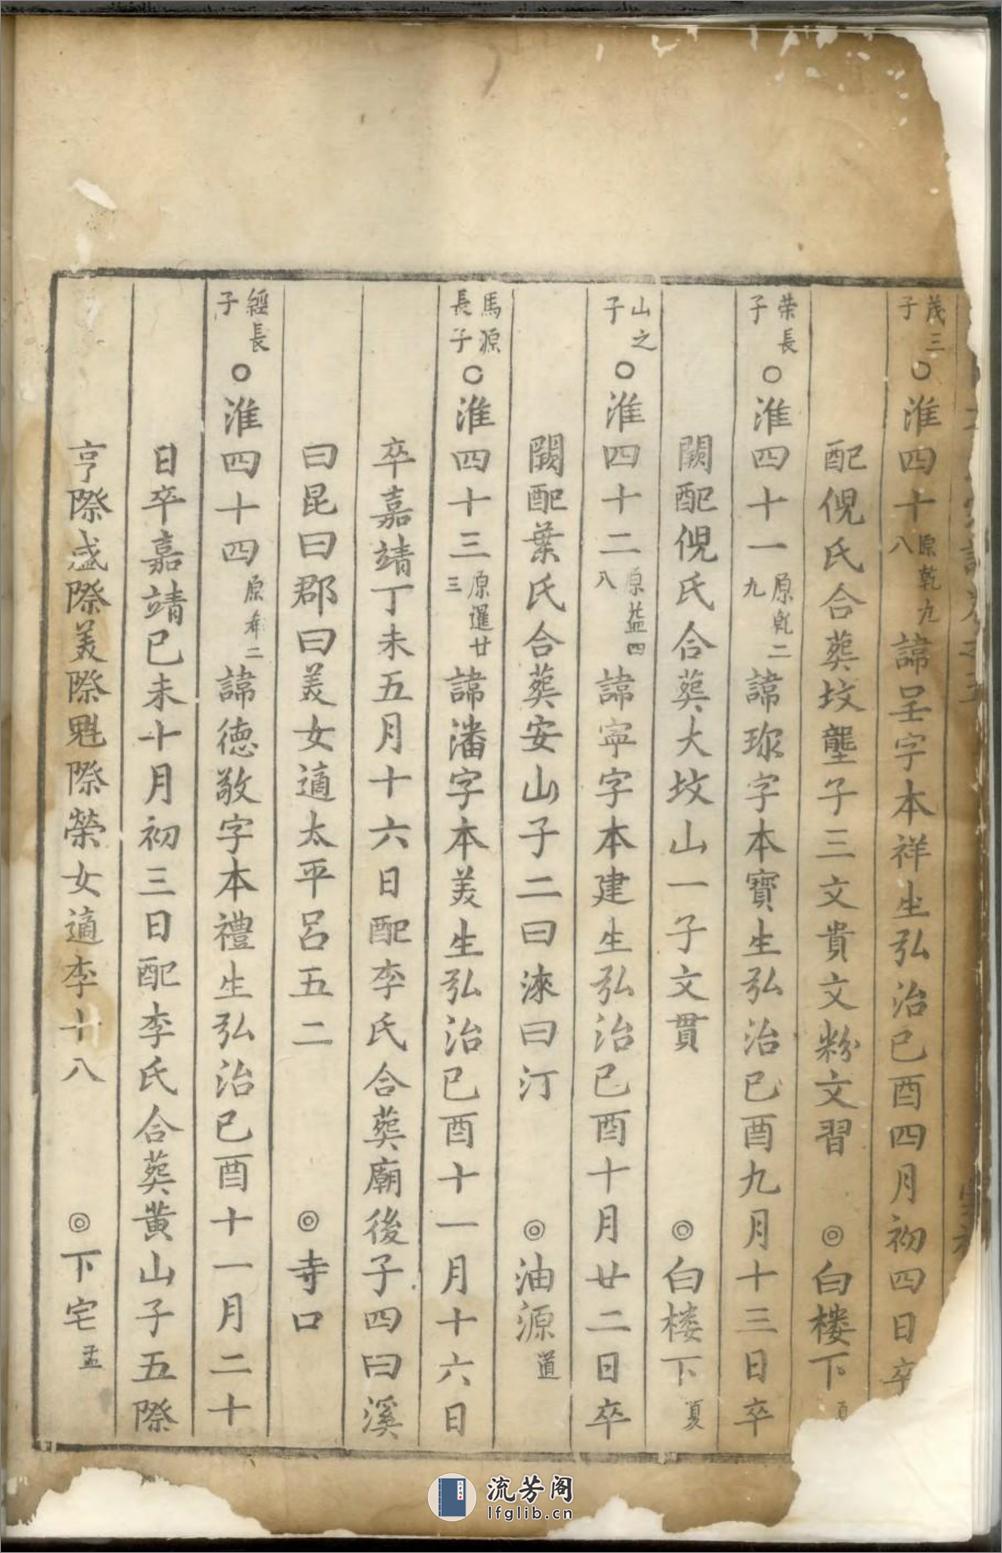 茂三子○淮四十原乾九八諱呈字本祥生弘治己酉四月初四日卒
配倪氏合葬坟壟子三文貴文粉文習◎白楼下
荣長子○淮四十一原乾二九諱珎字本寶生弘治己酉九月十三日卒
闕配倪氏合葬大坟山一子文貫◎白楼下夏
山之子○淮四十二原益四八諱寕字本建生弘治己酉十月廿二日卒
闕配葉氏合葬安山子二曰淶曰汀◎油源道
馬源長子○淮四十三原暹廿三諱潘字本美生弘治己酉十一月十六日
卒嘉靖丁未五月十六日配李氏合葬廟後子四曰溪
曰昆曰郡曰美女適太平呂五二◎寺口
經長子○淮四十四原二諱德敬字本禮生弘治己酉十一月二十
日卒嘉靖己未十月初三日配李氏合葬黄山子五際
亨際盛際美際魁際榮女適李十八◎下宅孟
流芳阁
lfglib.cn